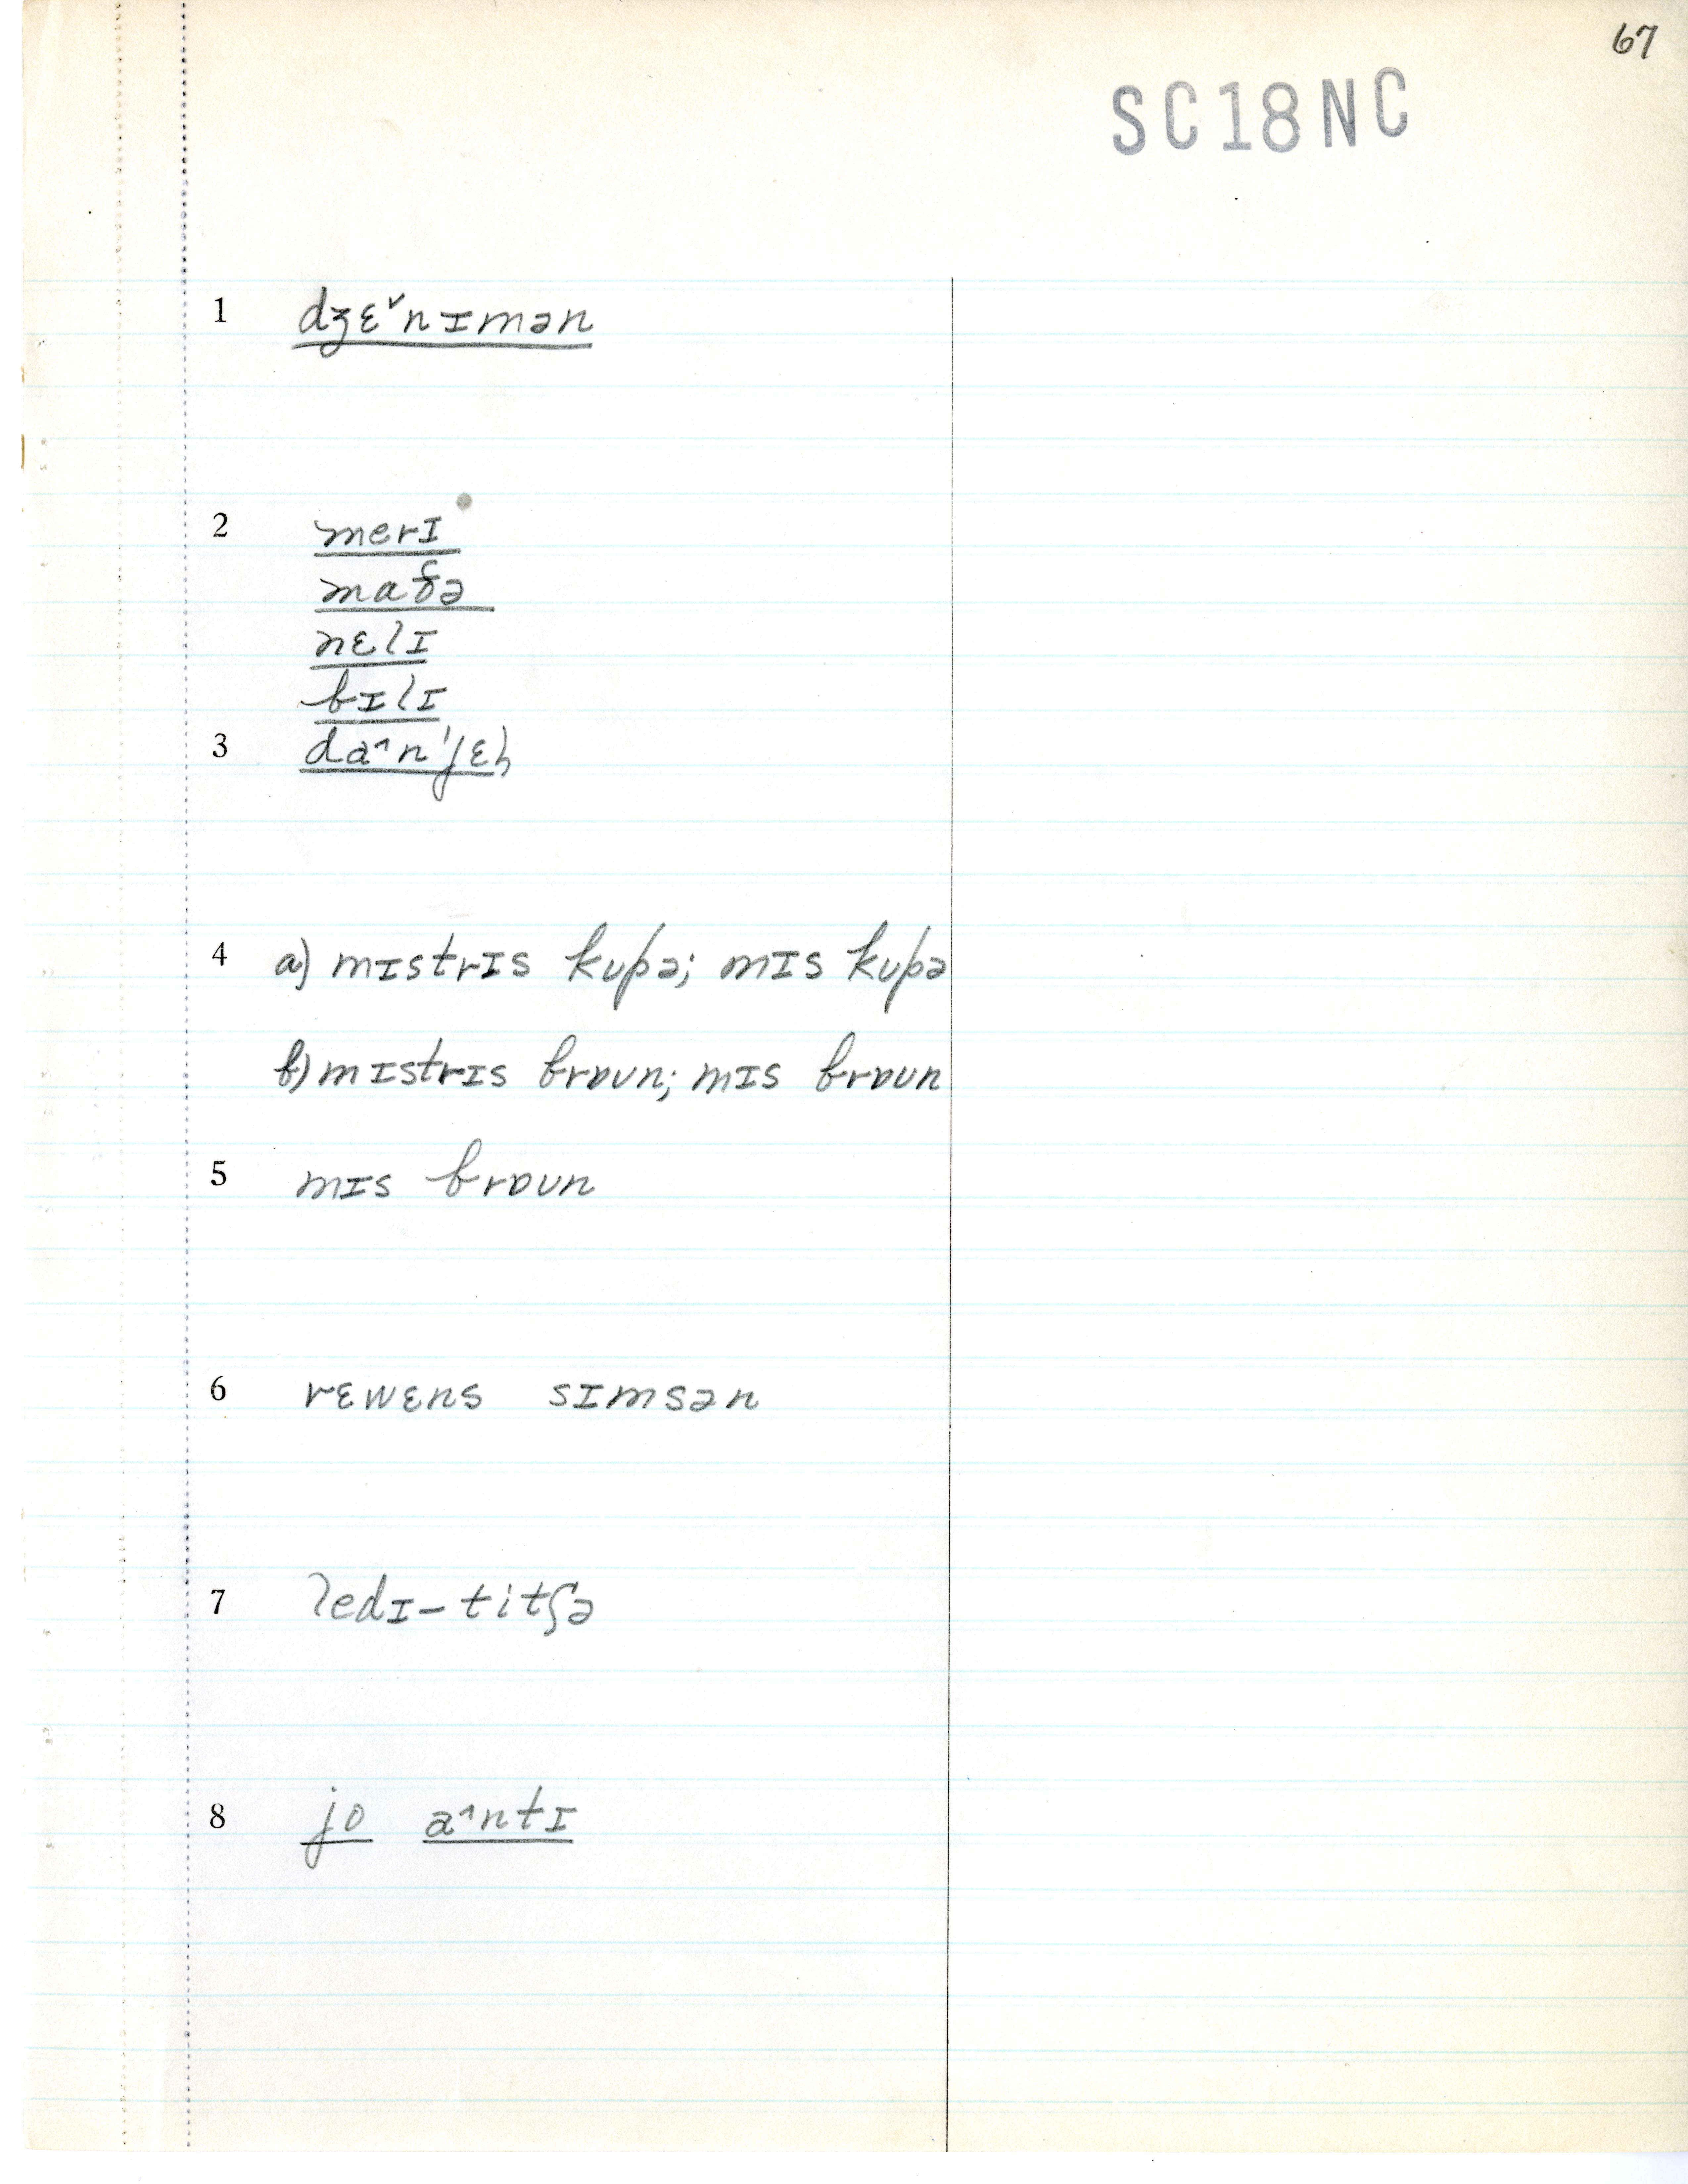 67
SC18NC
1 dʒɛ˅nɪmən
2 merɪ
maθə
nɛlɪ
bɪlɪ
3 da^n'jɛl
4 a) mɪstrɪs kupə; mɪs kupə
b) mɪstrɪs brɒun; mɪs brɒun
5 mɪs brɒun
6 rɛwɛns sɪmsən
7 ledɪ-titʃə
8 jo a^ntɪ